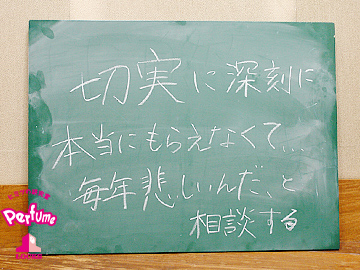 切実に深刻に
本当にもらえなくて…
毎年悲しいんだ、と
相談する
Perfume